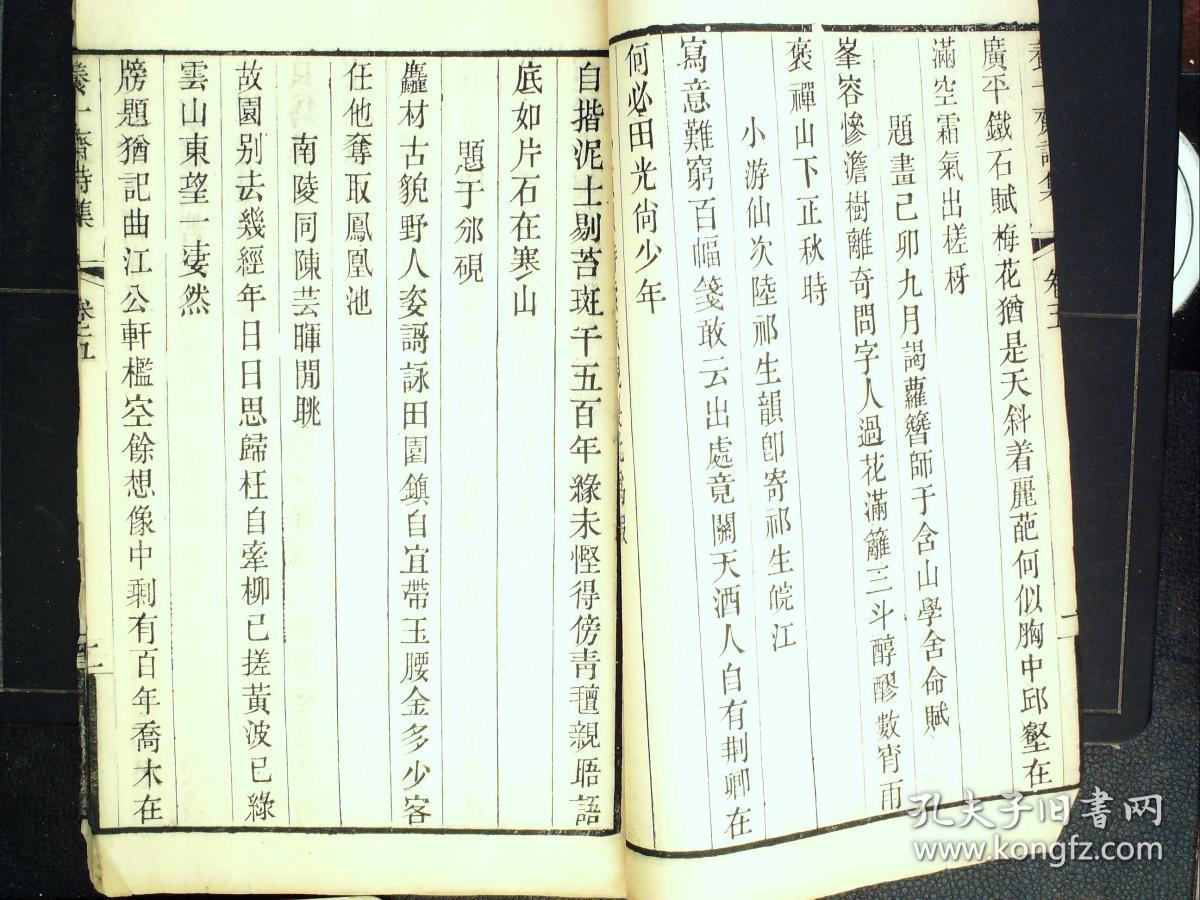 養一齋詩集
卷五
廣平鐵石賦梅花猶是天斜着麗葩何似胸中邱壑在
滿空霜氣出槎枒
題畫己卯九月謁蘿簪師于含山學舍命賦
峯容慘澹樹離奇問字人過花滿籬三斗醇醪數宵雨
褒禪山下正秋時
小游仙次陸祁生韻卽寄祁生皖江
寫意難窮百幅箋敢云出處竟關天酒人自有荆卿在
何必田光尙少年
自揩泥土剔苔斑千五百年緣未慳得傍靑氊親晤語
底如片石在寒山
題于邠硯
麤材古貌野人姿謌詠田園鎭自宜帶玉腰金多少客
任他奪取鳳凰池
南陵同陳芸暉閒眺
故園别去幾經年日日思歸枉自牽柳已搓黃波已綠
雲山東望一凄然
牓題猶記曲江公軒檻空餘想像中剩有百年喬木在
養一齋詩集
卷五
孔夫子旧书网
www.kongfz.com